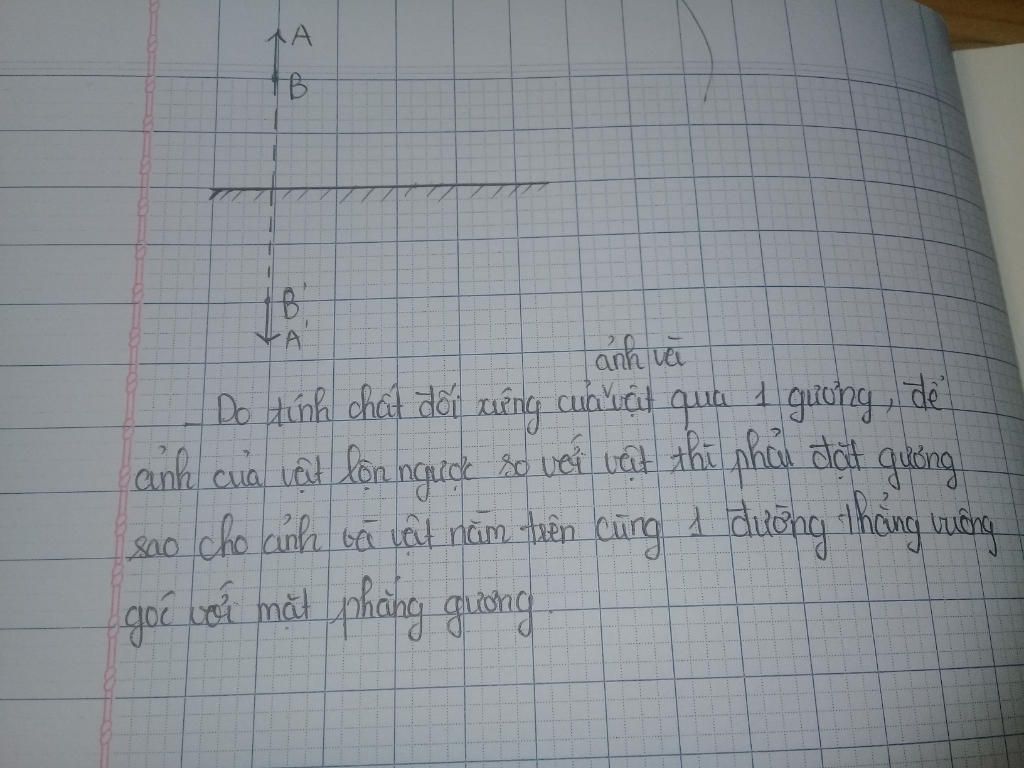 A
B
B'
A'
ảnh và
_ Do tính chất đối xứng của vật qua 1 gương, để
ảnh của vật lộn ngược so với vật thì phải đặt gương
sao cho ảnh và vật nằm trên cùng 1 đường thẳng vuông
góc với mặt phẳng gương.